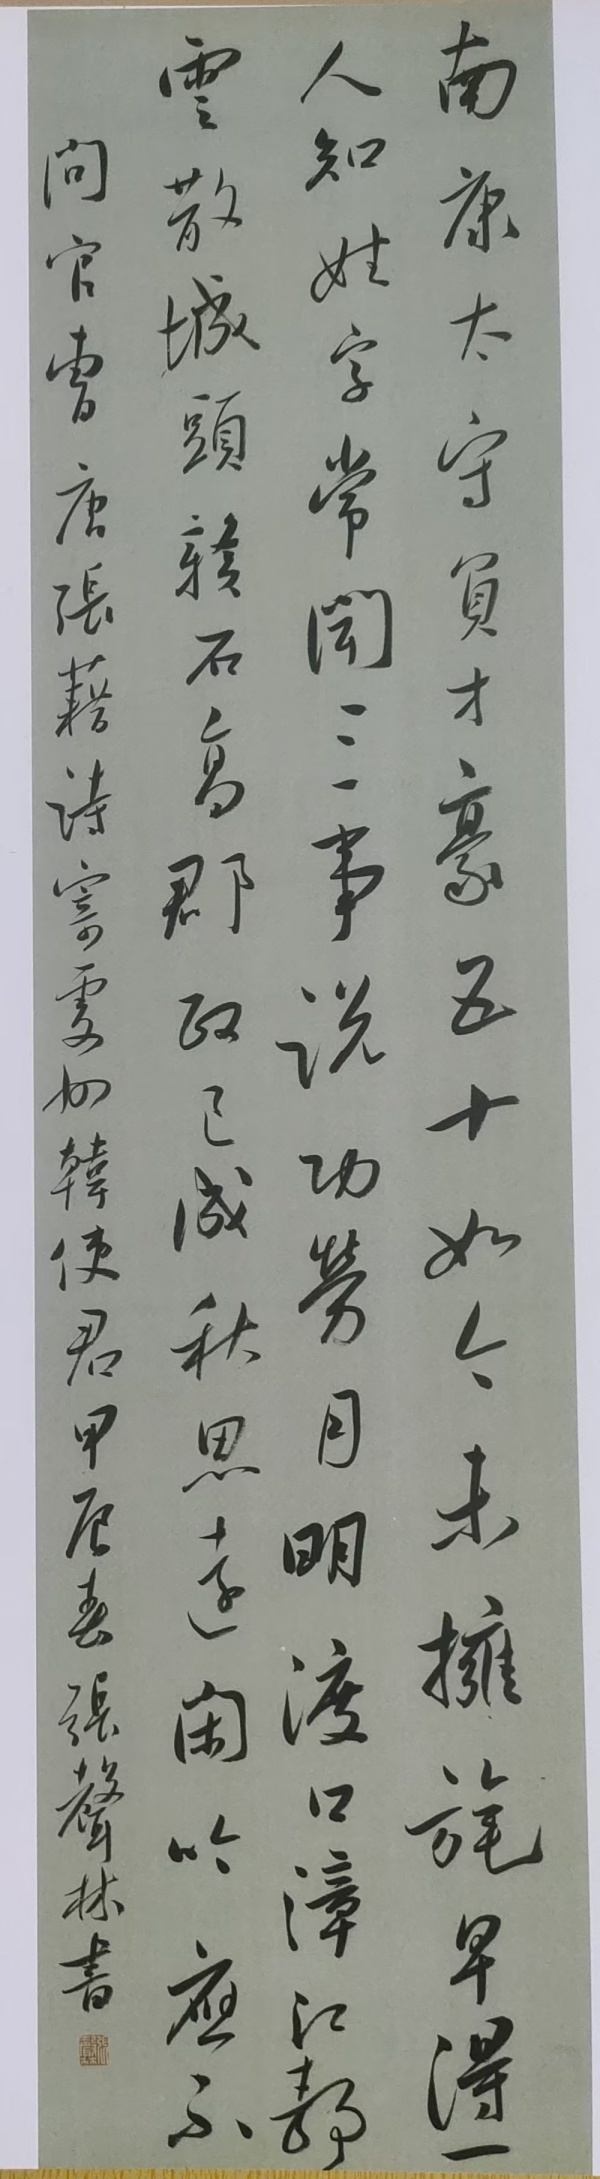 南康太守負才豪五十如今未擁旄早得一
人知姓字常聞三事說功勞月明渡口漳江靜
雲散城頭贛石高郡政已成秋思遠閑吟應不
問官曹唐張藉詩寄虔州韓使君甲辰春張聲林書